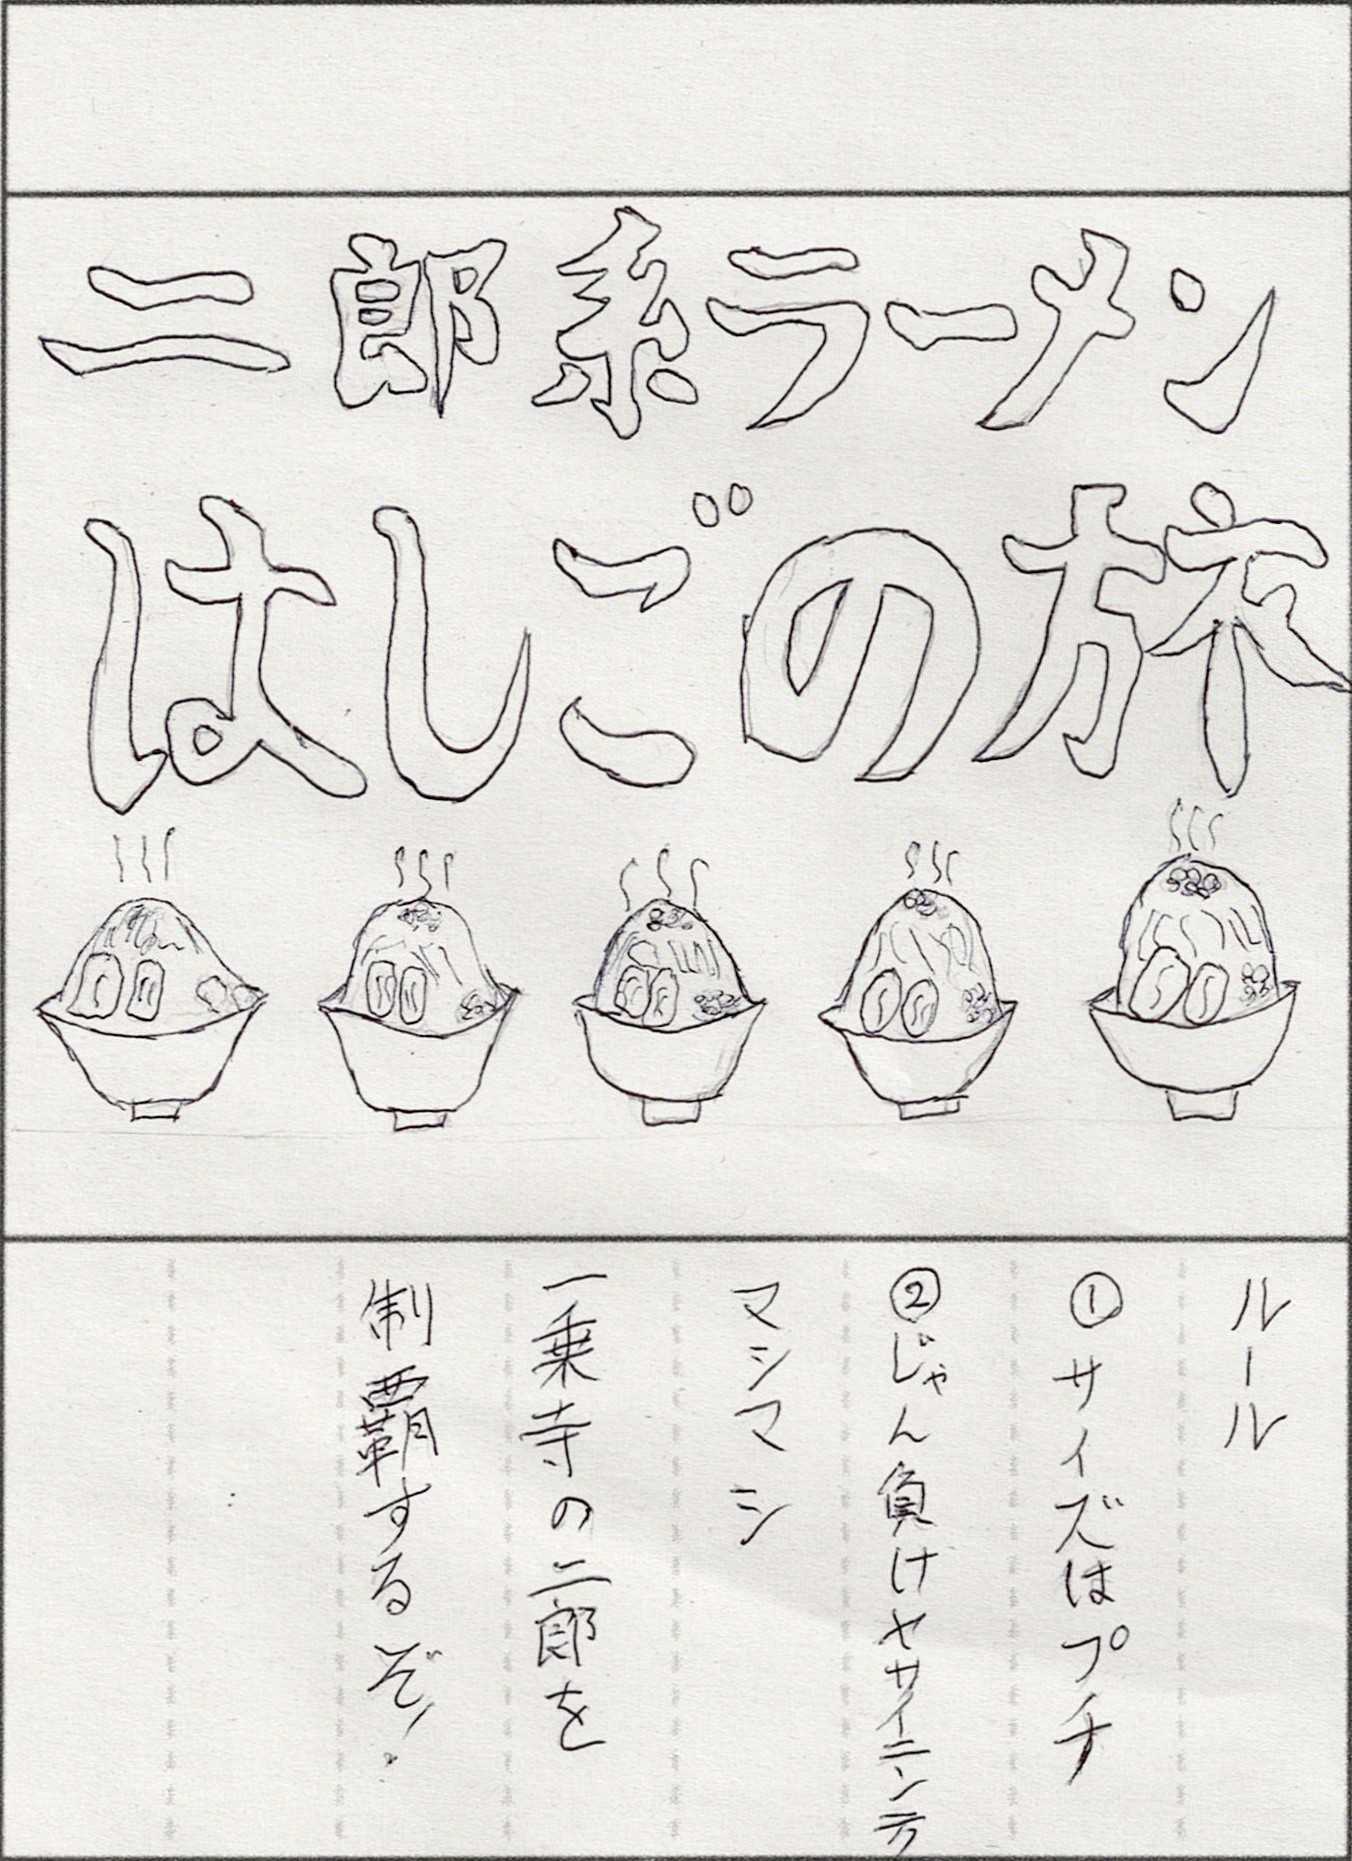 二郎系ラーメン
はしごの旅
ルール
①サイズはプチ
②じゃん負けヤサイニンニク
マシマシ
一乗寺の二郎を
制覇するぞ!